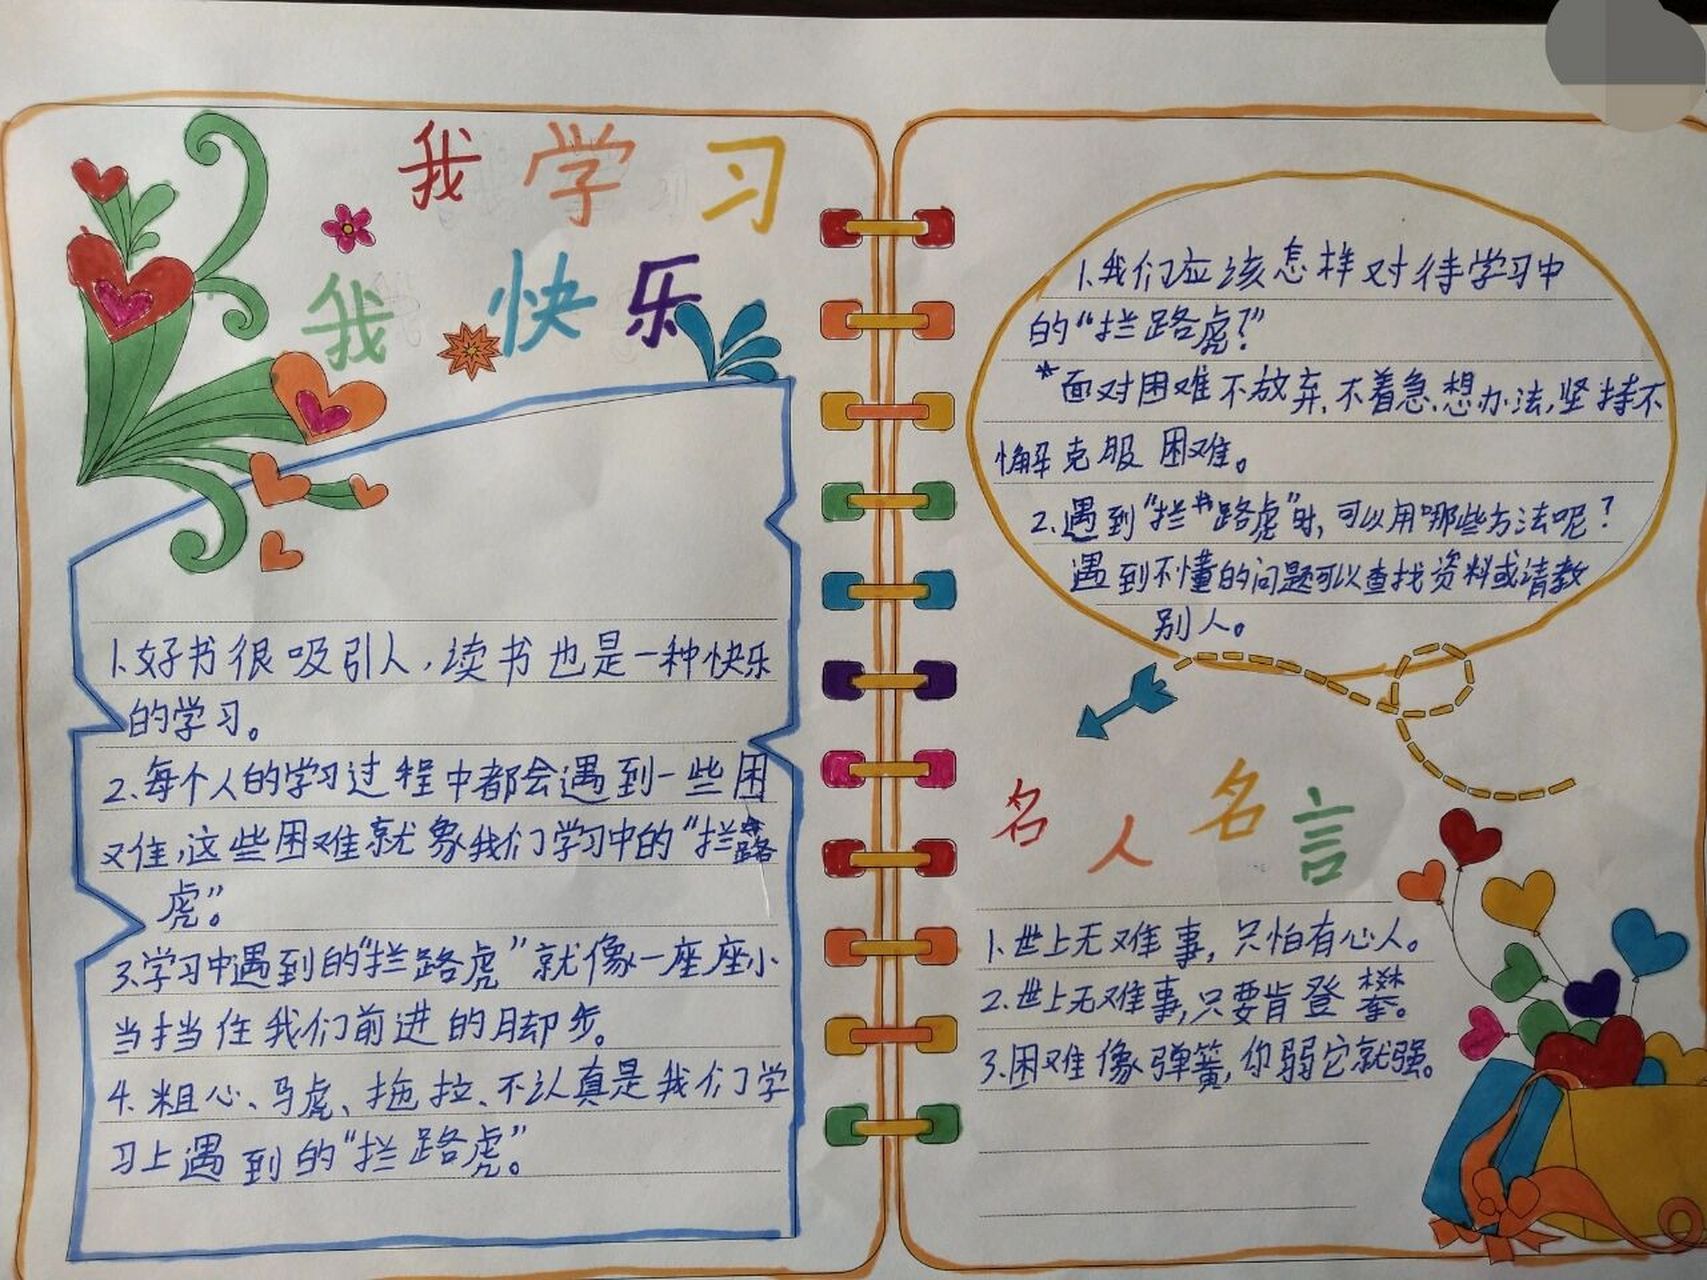 我学习
我快乐
1.好书很吸引人，读书也是一种快乐
的学习。
2.每个人的学习过程中都会遇到一些困
难，这些困难就象我们学习中的“拦路
虎”。
3.学习中遇到的“拦路虎”就像一座座小
当挡住我们前进的脚步。
4.粗心、马虎、拖拉、不认真是我们学
习上遇到的“拦路虎”。
1.我们应该怎样对待学习中
的“拦路虎？”
*面对困难不放弃、不着急、想办法，坚持不
懈克服困难。
2.遇到“拦路虎”时，可以用哪些方法呢？
遇到不懂的问题可以查找资料或请教
别人。
名人名言
1.世上无难事，只怕有心人。
2.世上无难事，只要肯登攀。
3.困难像弹簧，你弱它就强。